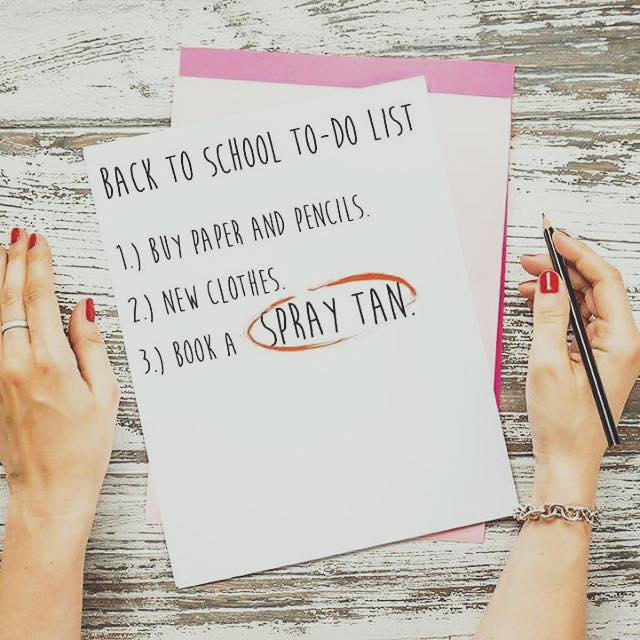 BACK TO SCHOOL TO-DO LIST
1.) BUY PAPER AND PENCILS.
2.) NEW CLOTHES.
3.) BOOK A SPRAY TAN.